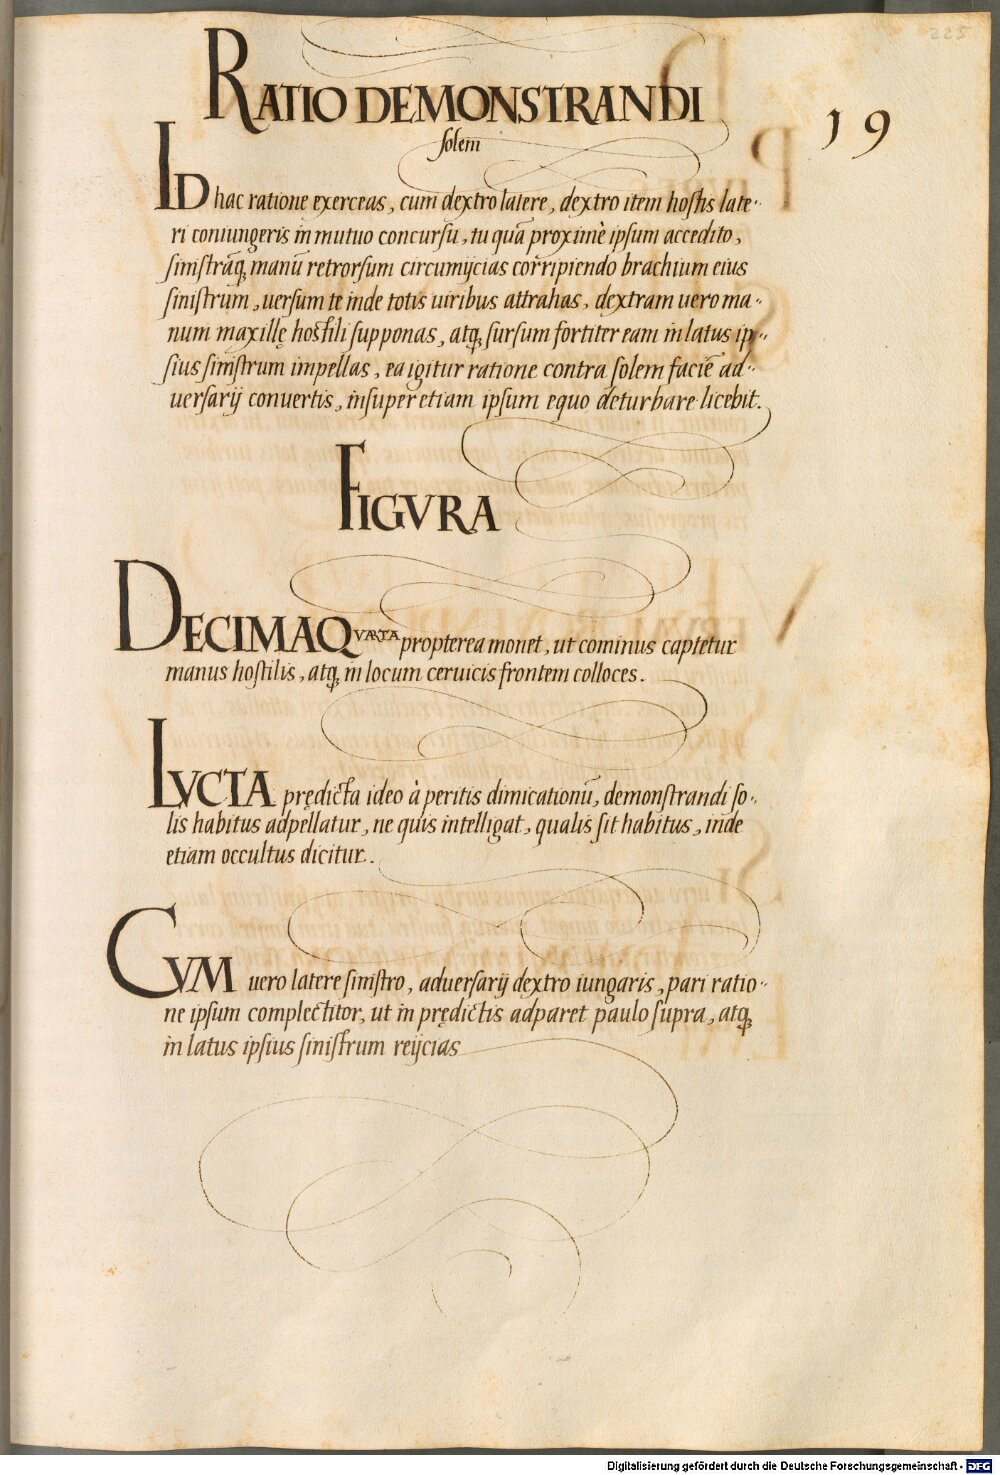 225
RATIO DEMONSTRANDI
solem
19
ID hac ratione exerceas, cum dextro latere, dextro item hostis late-
ri coniungeris in mutuo concursu, tu quā proximè ipsum accedito,
sinistrāq; manū retrorsum circumijcias corripiendo brachium eius
sinistrum, uersum te inde totis uiribus attrahas, dextram uero ma-
num maxillę hostili supponas, atq; sursum fortiter eam in latus ip-
sius sinistrum impellas, ea igitur ratione contra solem faciē ad-
uersarij conuertis, insuper etiam ipsum equo deturbare licebit.
FIGVRA
DECIMAQVARTA propterea monet, ut cominus captetur
manus hostilis, atq; in locum ceruicis frontem colloces.
LVCTA prędicta ideo à peritis dimicationū, demonstrandi so-
lis habitus adpellatur, ne quis intelligat, qualis sit habitus, inde
etiam occultus dicitur.
CVM uero latere sinistro, aduersarij dextro iungaris, pari ratio-
ne ipsum complectitor, ut in prędictis adparet paulo supra, atq;
in latus ipsius sinistrum reijcias
Digitalisierung gefördert durch die Deutsche Forschungsgemeinschaft - DFG